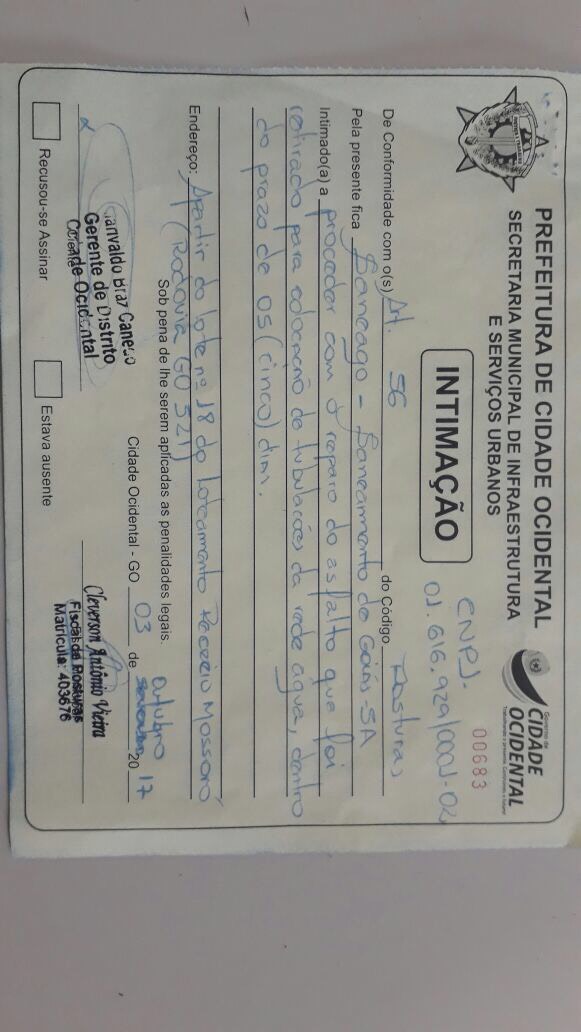 PREFEITURA DE CIDADE OCIDENTAL
SECRETARIA MUNICIPAL DE INFRAESTRUTURA
E SERVIÇOS URBANOS
Governo de
CIDADE
OCIDENTAL
00683
INTIMAÇÃO
CNPJ.
01.616.929/0001-02
De Conformidade com o(s) Art. 56 do Código Posturas
Pela presente fica Saneago - Saneamento de Goiás-SA
Intimado(a) a proceder com o reparo do asfalto que foi
retirado para colocação de tubulações da rede água, dentro
do prazo de 05 (cinco) dias.
Endereço: Apartir do lote nº 18 do loteamento Recreio Mossoró
(Rodovia GO 521)
Sob pena de lhe serem aplicadas as penalidades legais.
Cidade Ocidental - GO 03 de outubro 20 17
Gerente de Distrito
Cidade Ocidental
Cleverson Antônio Vieira
Fiscal de Posturas
Matrícula: 403676
Recusou-se Assinar
Estava ausente